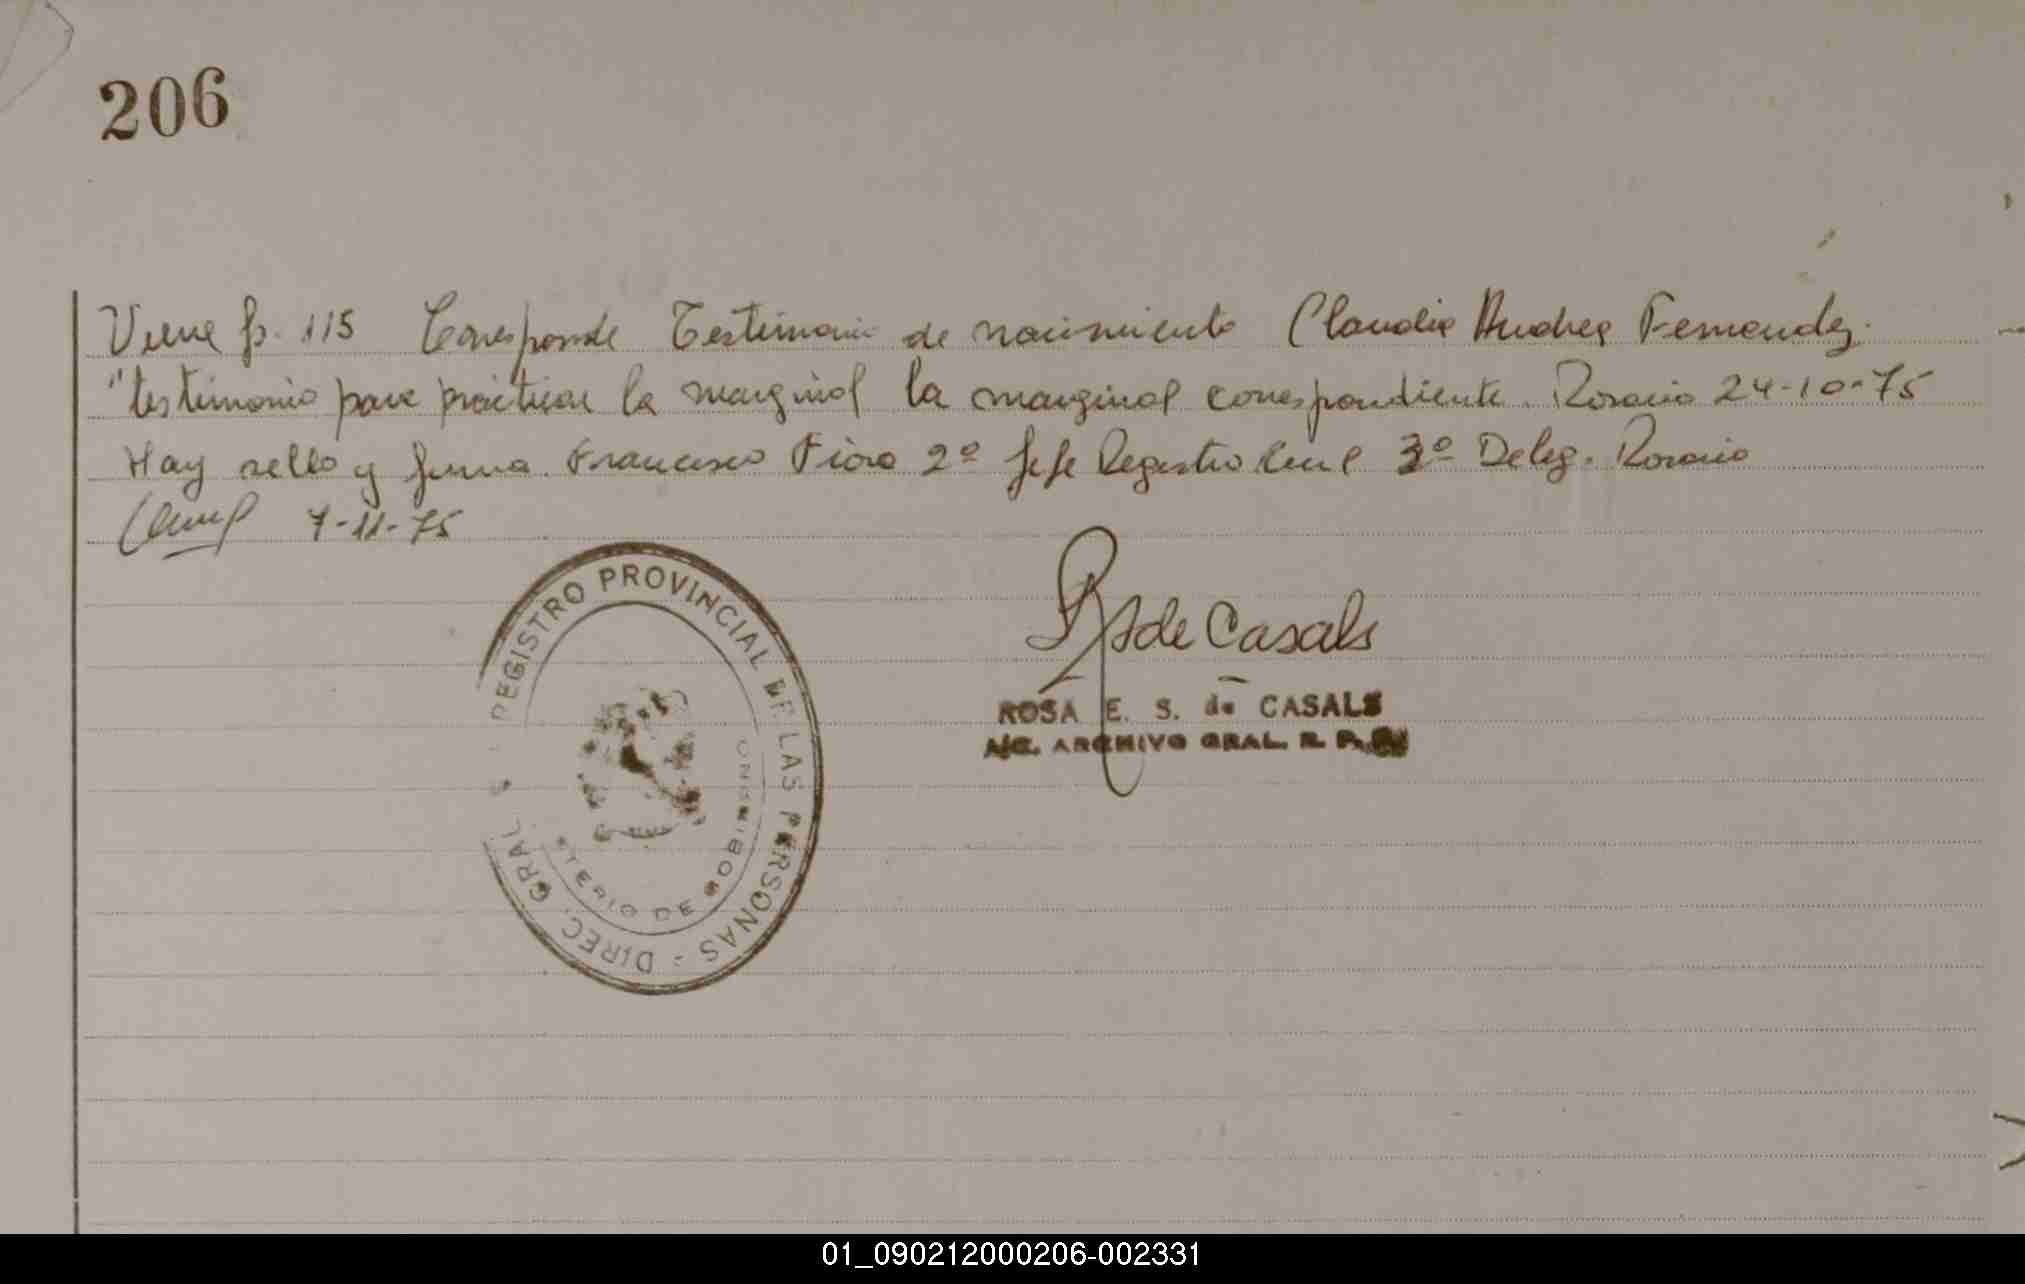 206
Viene fs. 115 Corresponde Testimonio de nacimiento Claudia Andrea Fernandez.
"testimonio para practicar la marginal la marginal correspondiente. Rosario 24-10-75
Hay sello y firma. Francisco Fiora 2º Jefe Registro Civil 3º Deleg. Rosario
7-11-75
REGISTRO PROVINCIAL DE LAS PERSONAS - DIREC. GRAL.
STERIO DE GOBIERNO
de Casals
ROSA E. S. de CASALS
A/C. ARCHIVO GRAL. R. P.
01_090212000206-002331